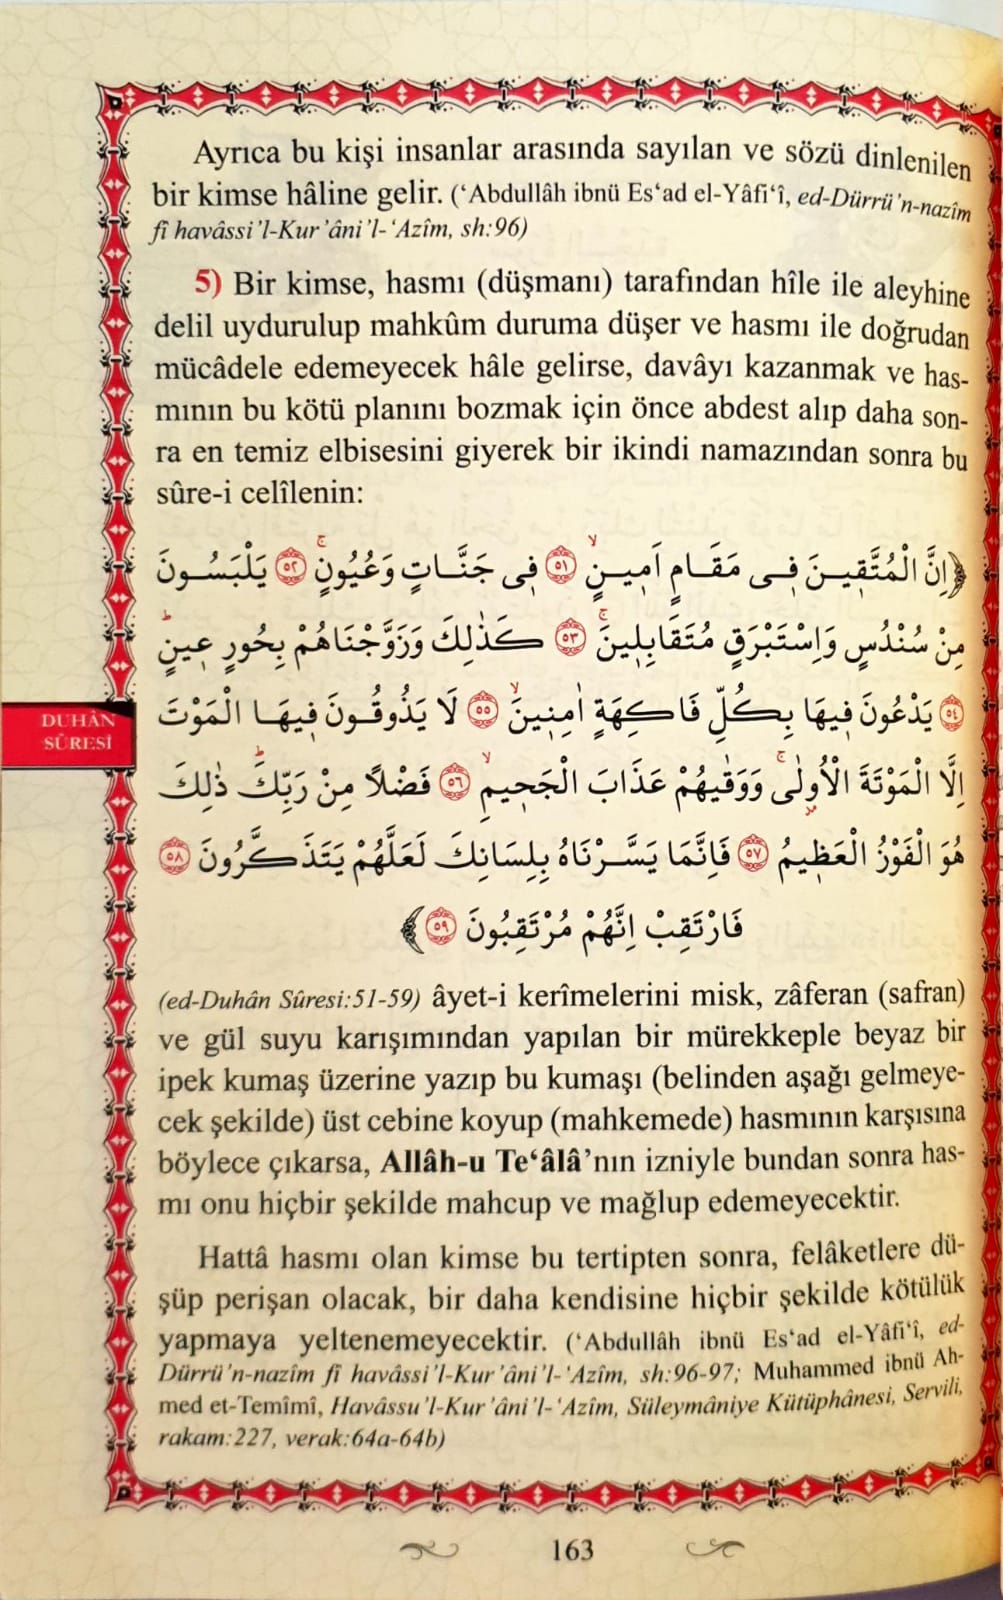 Ayrıca bu kişi insanlar arasında sayılan ve sözü dinlenilen
bir kimse hâline gelir. (‘Abdullâh ibnü Es‘ad el-Yâfi‘î, ed-Dürrü’n-nazîm
fî havâssi’l-Kur’âni’l-‘Azîm, sh:96)
5) Bir kimse, hasmı (düşmanı) tarafından hîle ile aleyhine
delil uydurulup mahkûm duruma düşer ve hasmı ile doğrudan
mücâdele edemeyecek hâle gelirse, davâyı kazanmak ve has-
mının bu kötü planını bozmak için önce abdest alıp daha son-
ra en temiz elbisesini giyerek bir ikindi namazından sonra bu
sûre-i celîlenin:
﴿اِنَّ الْمُتَّقٖينَ فٖى مَقَامٍ اَمٖينٍۙ ﴿٥١﴾ فٖى جَنَّاتٍ وَعُيُونٍۚ ﴿٥٢﴾ يَلْبَسُونَ
مِنْ سُنْدُسٍ وَاِسْتَبْرَقٍ مُتَقَابِلٖينَۚ ﴿٥٣﴾ كَذٰلِكَ وَزَوَّجْنَاهُمْ بِحُورٍ عٖينٍؕ
﴿٥٤﴾ يَدْعُونَ فٖيهَا بِكُلِّ فَاكِهَةٍ اٰمِنٖينَۙ ﴿٥٥﴾ لَا يَذُوقُونَ فٖيهَا الْمَوْتَ
اِلَّا الْمَوْتَةَ الْاُولٰىۚ وَوَقٰيهُمْ عَذَابَ الْجَحٖيمِۙ ﴿٥٦﴾ فَضْلًا مِنْ رَبِّكَؕ ذٰلِكَ
هُوَ الْفَوْزُ الْعَظٖيمُ ﴿٥٧﴾ فَاِنَّمَا يَسَّرْنَاهُ بِلِسَانِكَ لَعَلَّهُمْ يَتَذَكَّرُونَ ﴿٥٨﴾
فَارْتَقِبْ اِنَّهُمْ مُرْتَقِبُونَ ﴿٥٩﴾﴾
DUHÂN
SÛRESİ
(ed-Duhân Sûresi:51-59) âyet-i kerîmelerini misk, zâferan (safran)
ve gül suyu karışımından yapılan bir mürekkeple beyaz bir
ipek kumaş üzerine yazıp bu kumaşı (belinden aşağı gelmeye-
cek şekilde) üst cebine koyup (mahkemede) hasmının karşısına
böylece çıkarsa, Allâh-u Te‘âlâ’nın izniyle bundan sonra has-
mı onu hiçbir şekilde mahcup ve mağlup edemeyecektir.
Hattâ hasmı olan kimse bu tertipten sonra, felâketlere dü-
şüp perişan olacak, bir daha kendisine hiçbir şekilde kötülük
yapmaya yeltenemeyecektir. (‘Abdullâh ibnü Es‘ad el-Yâfi‘î, ed-
Dürrü’n-nazîm fî havâssi’l-Kur’âni’l-‘Azîm, sh:96-97; Muhammed ibnü Ah-
med et-Temîmî, Havâssu’l-Kur’âni’l-‘Azîm, Süleymâniye Kütüphânesi, Servili,
rakam:227, verak:64a-64b)
163